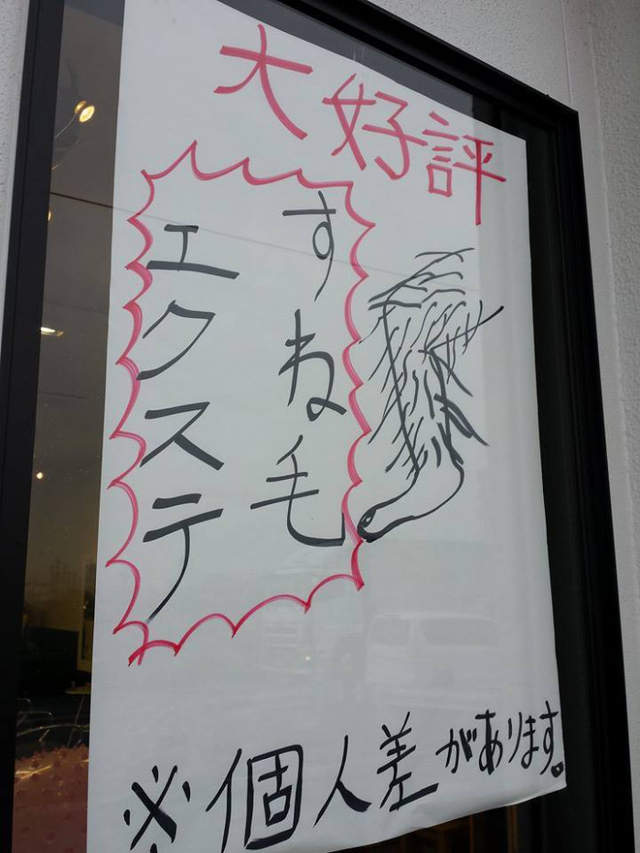 大好評
すね毛
エクステ
※個人差があります。